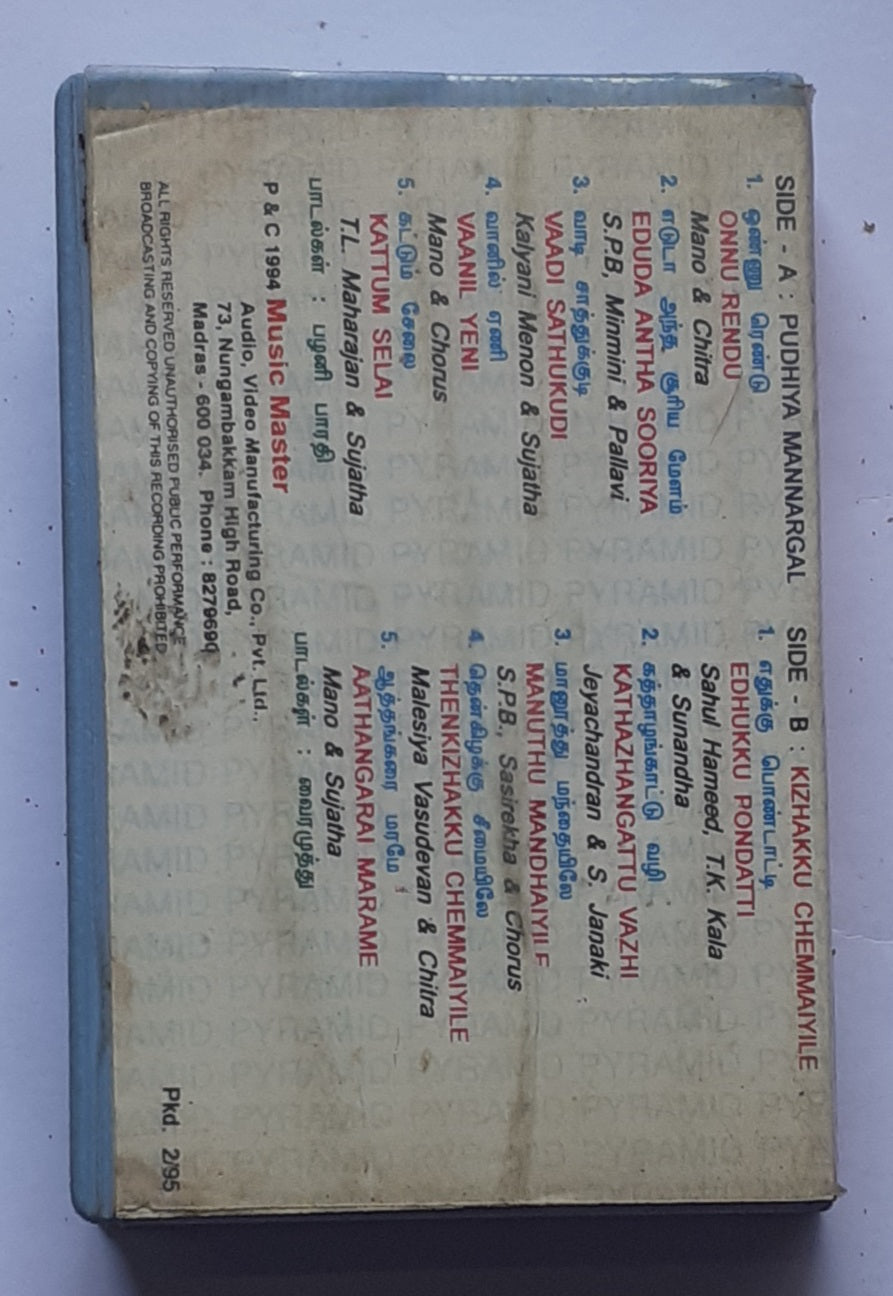 SIDE - A : PUDHIYA MANNARGAL
1. ஒண்ணு ரெண்டு
ONNU RENDU
Mano & Chitra
2. எடுடா அந்த சூரிய மேளம்
EDUDA ANTHA SOORIYA
S.P.B, Minmini & Pallavi
3. வாடி சாத்துக்குடி
VAADI SATHUKUDI
Kalyani Menon & Sujatha
4. வானில் ஏணி
VAANIL YENI
Mano & Chorus
5. கட்டும் சேலை
KATTUM SELAI
T.L. Maharajan & Sujatha
பாடல்கள் : பழனி பாரதி
SIDE - B : KIZHAKKU CHEMMAIYILE
1. எதுக்கு பொண்டாட்டி
EDHUKKU PONDATTI
Sahul Hameed, T.K. Kala
& Sunandha
2. கத்தாழங்காட்டு வழி
KATHAZHANGATTU VAZHI
Jeyachandran & S. Janaki
3. மானூத்து மந்தையிலே
MANUTHU MANDHAIYILE
S.P.B., Sasirekha & Chorus
4. தென்கிழக்கு சீமையிலே
THENKIZHAKKU CHEMMAIYILE
Malesiya Vasudevan & Chitra
5. ஆத்தங்கரை மரமே
AATHANGARAI MARAME
Mano & Sujatha
பாடல்கள் : வைரமுத்து
P & C 1994 Music Master
Audio, Video Manufacturing Co., Pvt. Ltd.,
73, Nungambakkam High Road,
Madras - 600 034. Phone : 8279690
ALL RIGHTS RESERVED UNAUTHORISED PUBLIC PERFORMANCE
BROADCASTING AND COPYING OF THIS RECORDING PROHIBITED
Pkd. 2/95